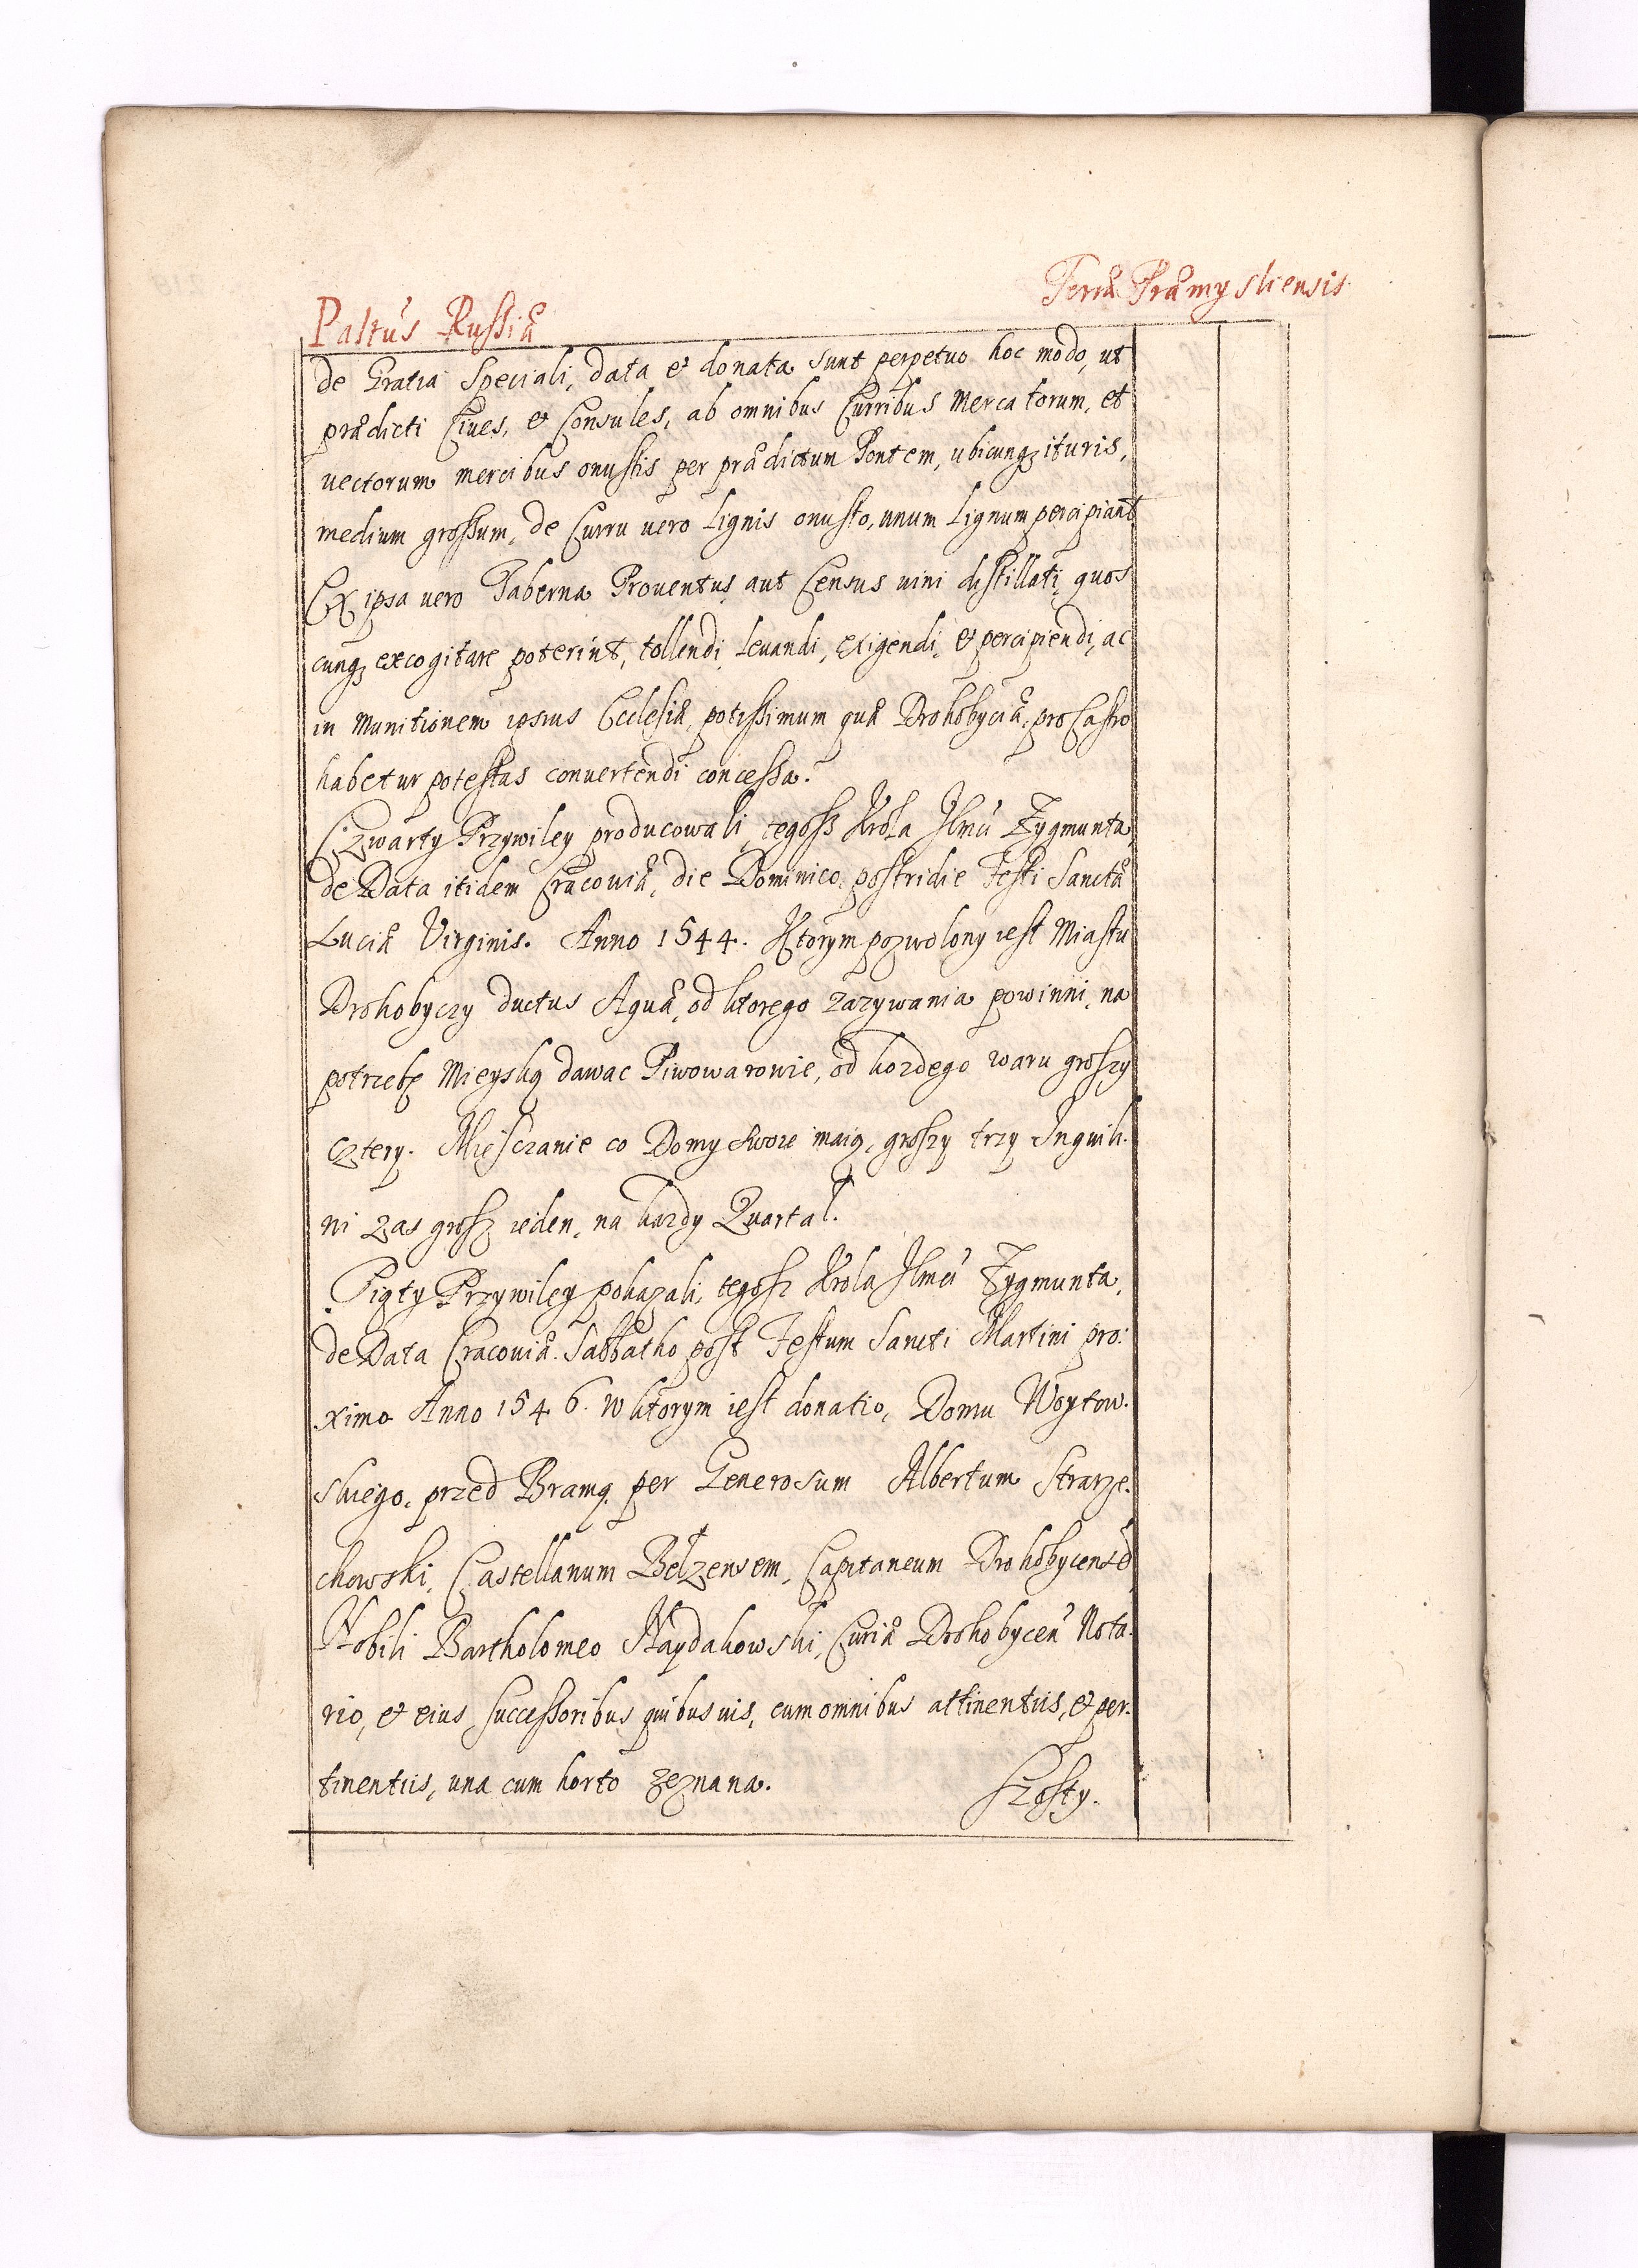 Palt'us Russiæ
Terræ Præmysliensis
de Gratia Speciali, data et donata sunt perpetuo hoc modo, ut
prædicti Ciues, et Consules, ab omnibus Curribus Mercatorum, et
uectorum mercibus onustis per prædictum Pontem, ubicunqꝫ ituris,
medium grossum, de Curru uero Lignis onusto, unum Lignum percipiant
Ex ipsa uero Taberna Prouentus aut Census uini distillati, quos
cunqꝫ excogitare poterint, tollendi, Leuandi, exigendi, et percipiendi, ac
in Munitionem ipsius Ecclesiæ, potissimum quæ Drohobyciæ, pro Castro
habetur potestas conuertendi concessa.
Czwarty Przywiley producowali, tegosz Krola Jmci Zygmunta,
de Data itidem Cracouiæ, die Dominico postridie Festi Sanctæ
Luciæ Virginis. Anno 1544. Ktorym pozwolony iest Miastu
Drohobyczy ductus Aquæ, od ktorego zazywania powinni, na
potrzebę Mieyską dawac Piwowarowie, od kozdego waru groszy
cztery. Miesczanie co Domy swoie maią, groszy trzy Inquili.
ni zas grosz ieden, na kozdy Quartal.
Piąty Przywiley pokazali, tegosz Krola Jmci Zygmunta,
de Data Cracouiæ. Sabbatho post Festum Sancti Martini pro.
ximo Anno 1546. w ktorym iest donatio, Domu Woytow.
skiego, przed Bramą per Generosum Albertum Strarze.
chowski, Castellanum Belzensem, Capitaneum Drohobycensē
Nobili Bartholomeo Naydakowski, Curiæ Drohobycen' Nota.
rio, et eius Successoribus quibusuis, cum omnibus attinentiis, et per.
tinentiis, una cum horto zeznana.
Szosty.